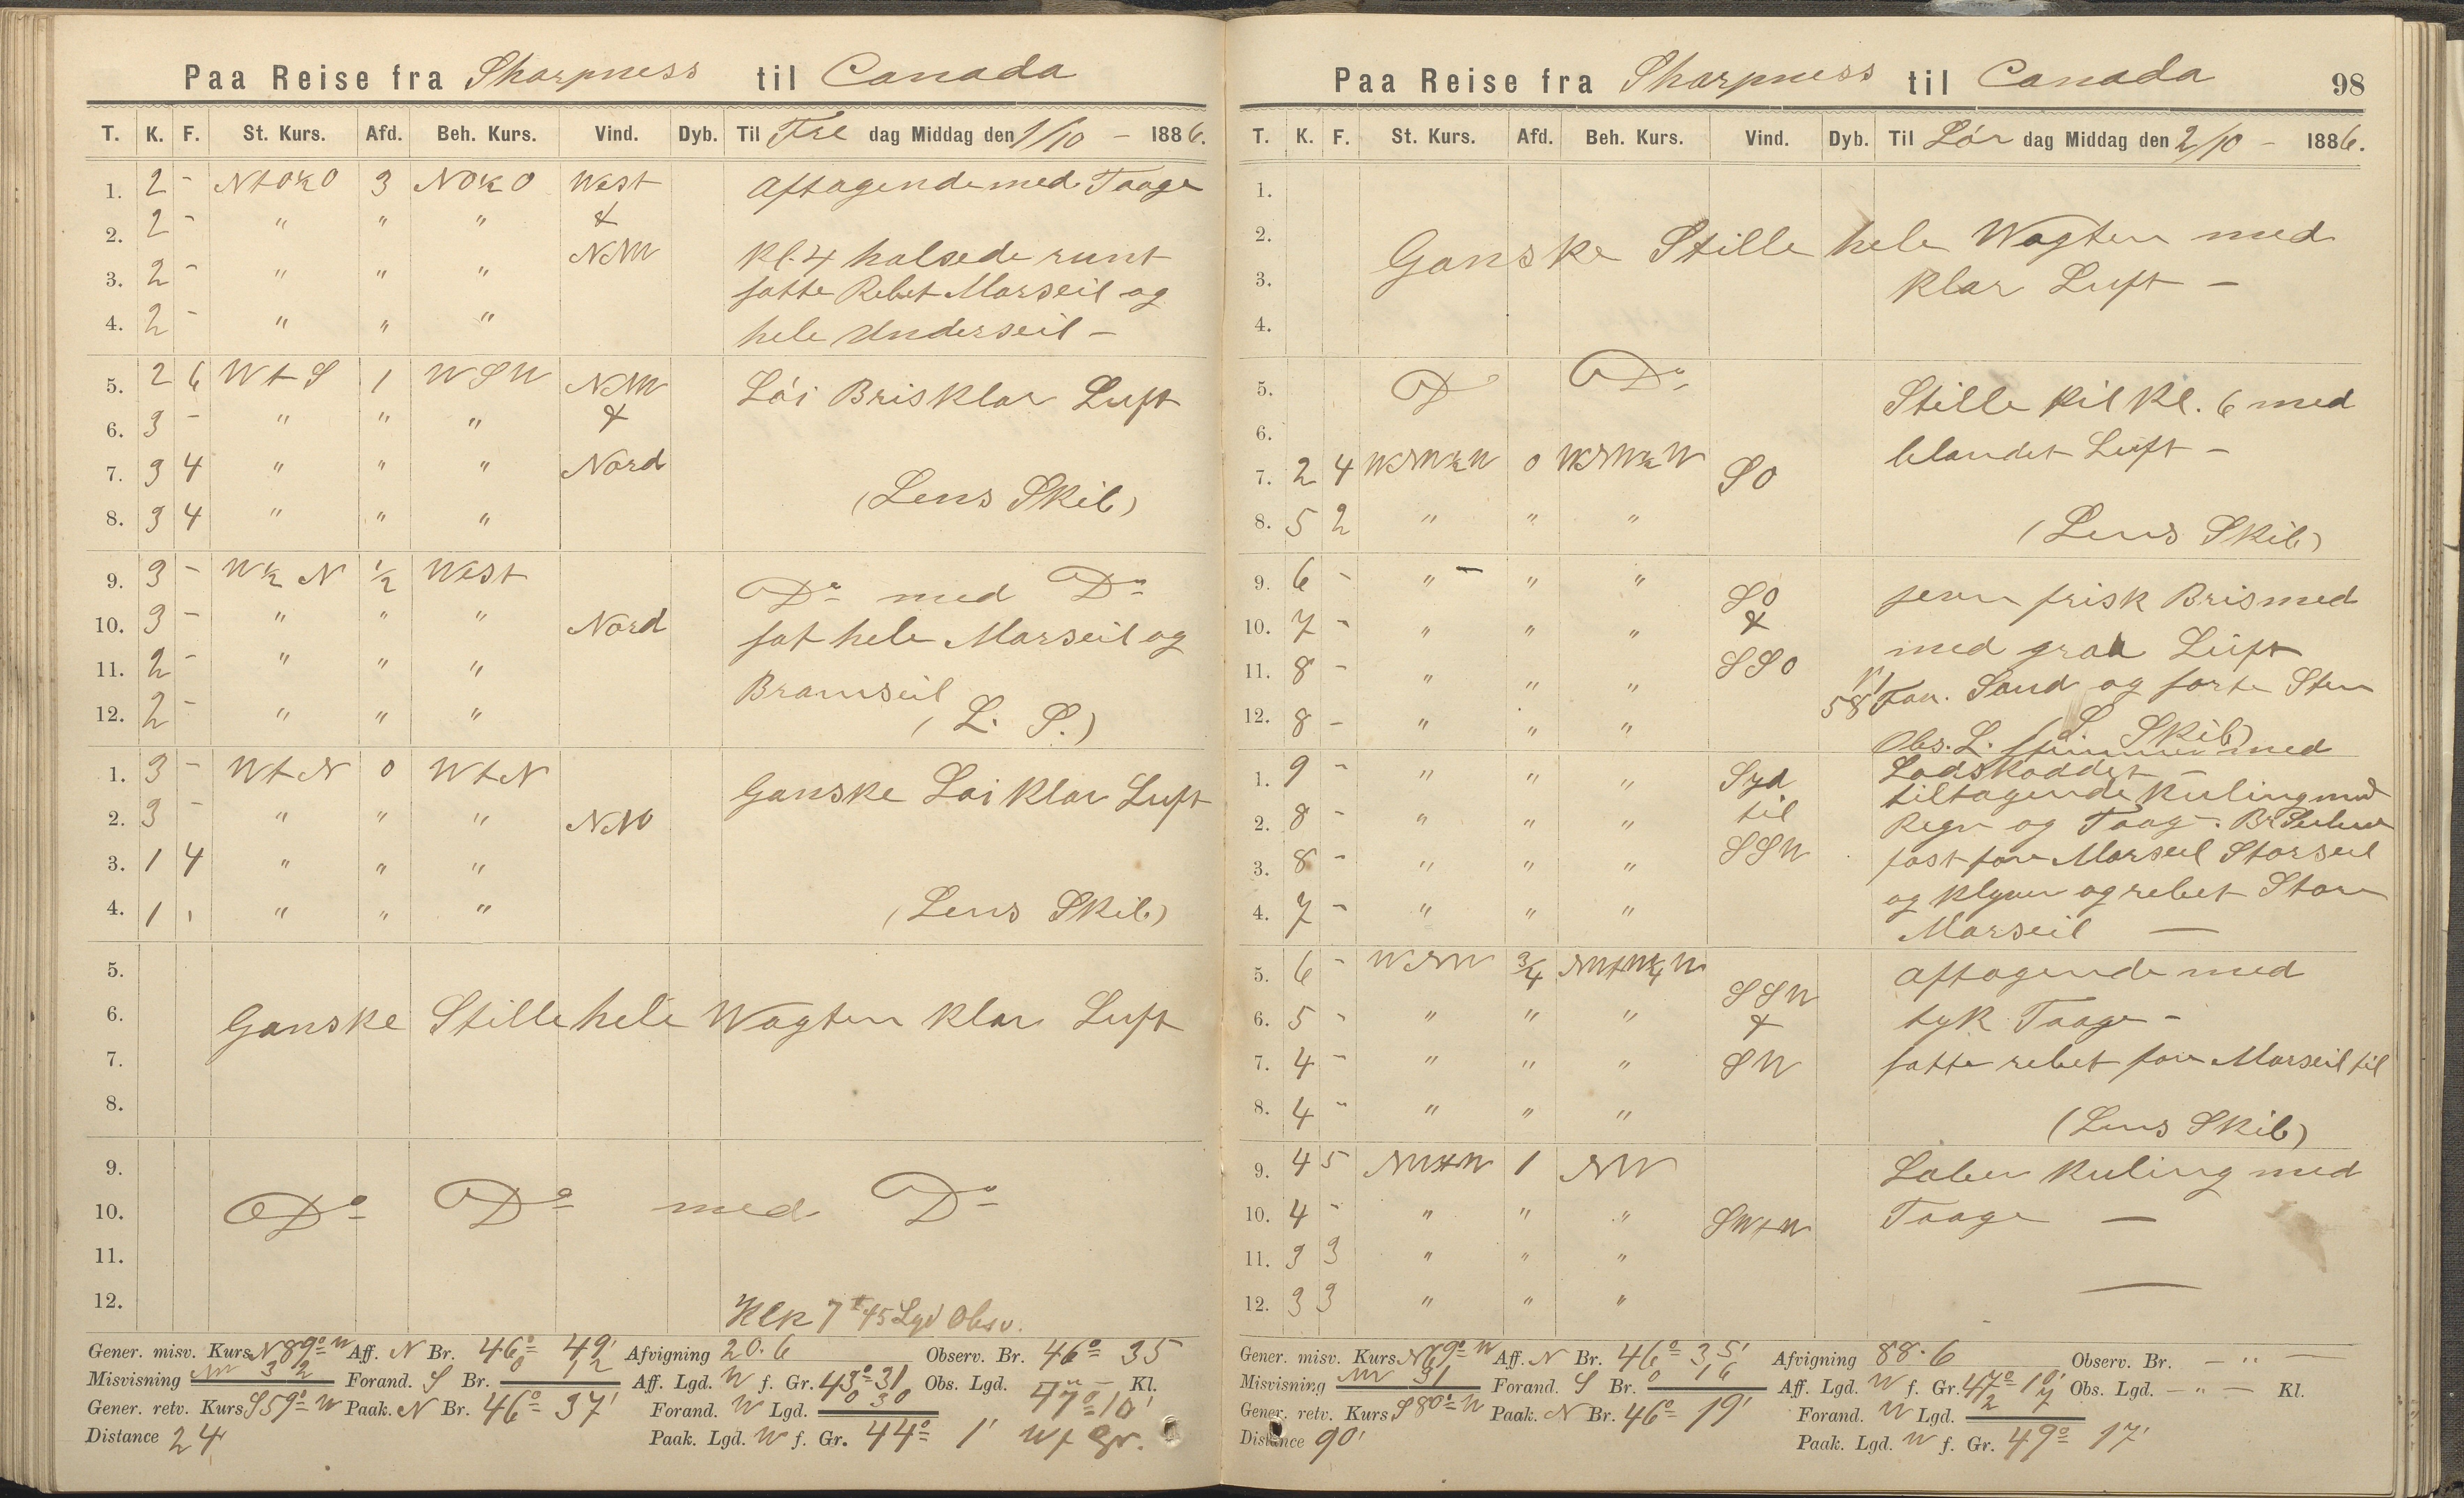 Paa Reise fra Sharpness til Canada
T. K. F. St. Kurs. Afd. Beh. Kurs. Vind. Dyb. Til Fre dag Middag den 1/10 - 1886.
1. 2 - NtO½O 3 NO½O West Aftagende med Taage
2. 2 - " " " &
3. 2 - " " " NNW Kl. 4 halsede runt
satte Rebet Marseil og
4. 2 - " " " hele Underseil -
5. 2 6 WtS 1 WSW NNW Löi Bris Klar Luft
6. 3 - " " " &
7. 3 4 " " " Nord
8. 3 4 " " " (Lens Skib)
9. 3 - W½N ½ West Do med Do
10. 3 - " " " Nord sat hele Marseil og
11. 2 - " " " Bramseil
12. 2 - " " " (L. S.)
1. 3 - WtN 0 WtN Ganske Löi Klar Luft
2. 3 - " " " NNO
3. 1 4 " " "
4. 1 , " " " (Lens Skib)
5.
6. Ganske Stille hele Wagten Klar Luft
7.
8.
9.
10. Do Do med Do
11.
12. Klk 7 45 Lgd Obsv.
Gener. misv. Kurs N 89° W Aff. N Br. 46° 49' Afvigning 20.6 Observ. Br. 46° 35
Misvisning 32 Forand. S Br. 0 12 Aff. Lgd. W f. Gr. 43° 31 Obs. Lgd. - " - Kl.
Gener. retv. Kurs S 59° W Paak. N Br. 46° 37' Forand. W Lgd. 0 30 47° 10'
Distance 24 Paak. Lgd. W f. Gr. 44° 1' W f Gr.
Paa Reise fra Sharpness til Canada 98
T. K. F. St. Kurs. Afd. Beh. Kurs. Vind. Dyb. Til Lör dag Middag den 2/10 - 1886.
1.
2. Ganske Stille hele Wagten med
3. Klar Luft -
4.
5. Do Do Stille til Kl. 6 med
6. blandet Luft -
7. 2 4 WNW½W 0 WNW½W SO
8. 5 2 " " " (Lens Skib)
9. 6 - " " " SO jevn frisk Bris med
10. 7 - " " " & med graa Luft
11. 8 - " " " SSO 58 Fav. Sand og sorte Sten
12. 8 - " " " (L Skib)
Obs. L. med
Lodskoddet -
1. 9 - " " " Syd tiltagende Kuling med
2. 8 - " " " til Regn og Taage. Br Seilene
3. 8 - " " " SSW fast fore Marseil Storseil
og Klyver og rebet Store
4. 7 - " " " Marseil -
5. 6 - WNW ¾ NWtW¼W SSW Aftagende med
6. 5 - " " " & tyk Taage -
7. 4 - " " " SW satte rebet fore Marseil til
8. 4 - " " " (Lens Skib)
9. 4 5 NWtW 1 NW Laber Kuling med
10. 4 - " " " SWtW Taage -
11. 3 3 " " "
12. 3 3 " " "
Gener. misv. Kurs N 69° W Aff. N Br. 46° 35' Afvigning 88.6 Observ. Br. - " -
Misvisning 31 Forand. S Br. 0 16 Aff. Lgd. W f. Gr. 47° 10' Obs. Lgd. - " - Kl.
Gener. retv. Kurs S 80° W Paak. N Br. 46° 19' Forand. W Lgd. 2 7
Distance 90' Paak. Lgd. W f. Gr. 49° 17'